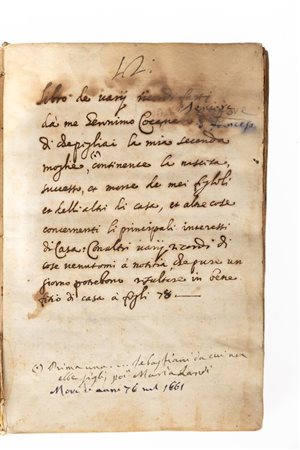 42.
Libro de varij ricordi fatti
da me Gernimo
di che pigliai la mia seconda
moglie, (1) continence la nascita,
successo, et morte de mei figloli
et delli altri di casa, et altre cose
concernenti li principali interessi
di Casa: Con altri varij ricordi di
cose venutomi á notitia, che pure un
giorno potrebono risultare in bene
fitio di casa á figli 78
(1) Prima una ... Sebastiani da cui non
ebbe figli, poi Maria Landi
Morì d'anni 76 nel 1661